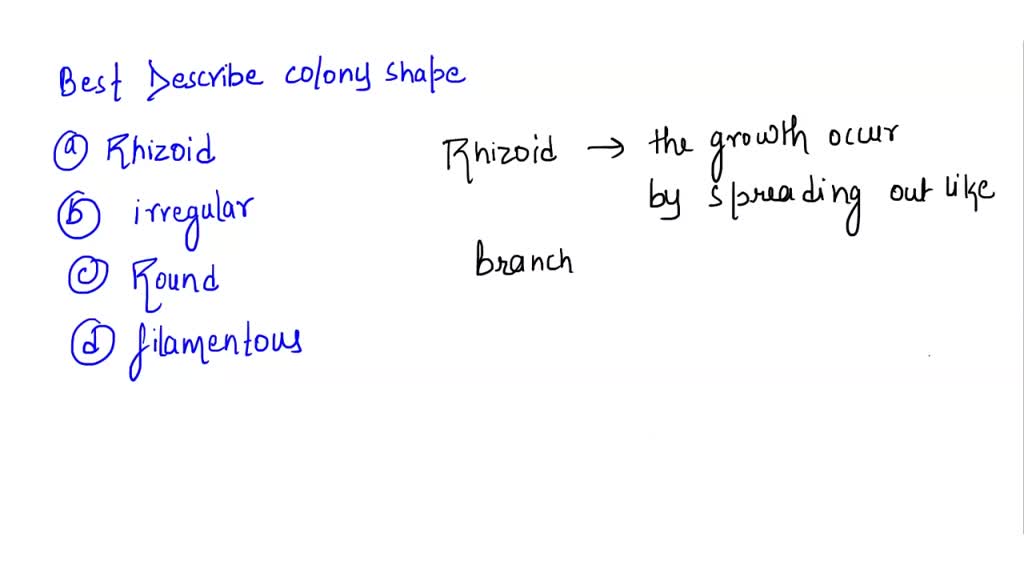 Best Describe colony shape
(a) Rhizoid
(b) irregular
(c) Round
(d) filamentous
Rhizoid → the growth occur
by spreading out like
branch